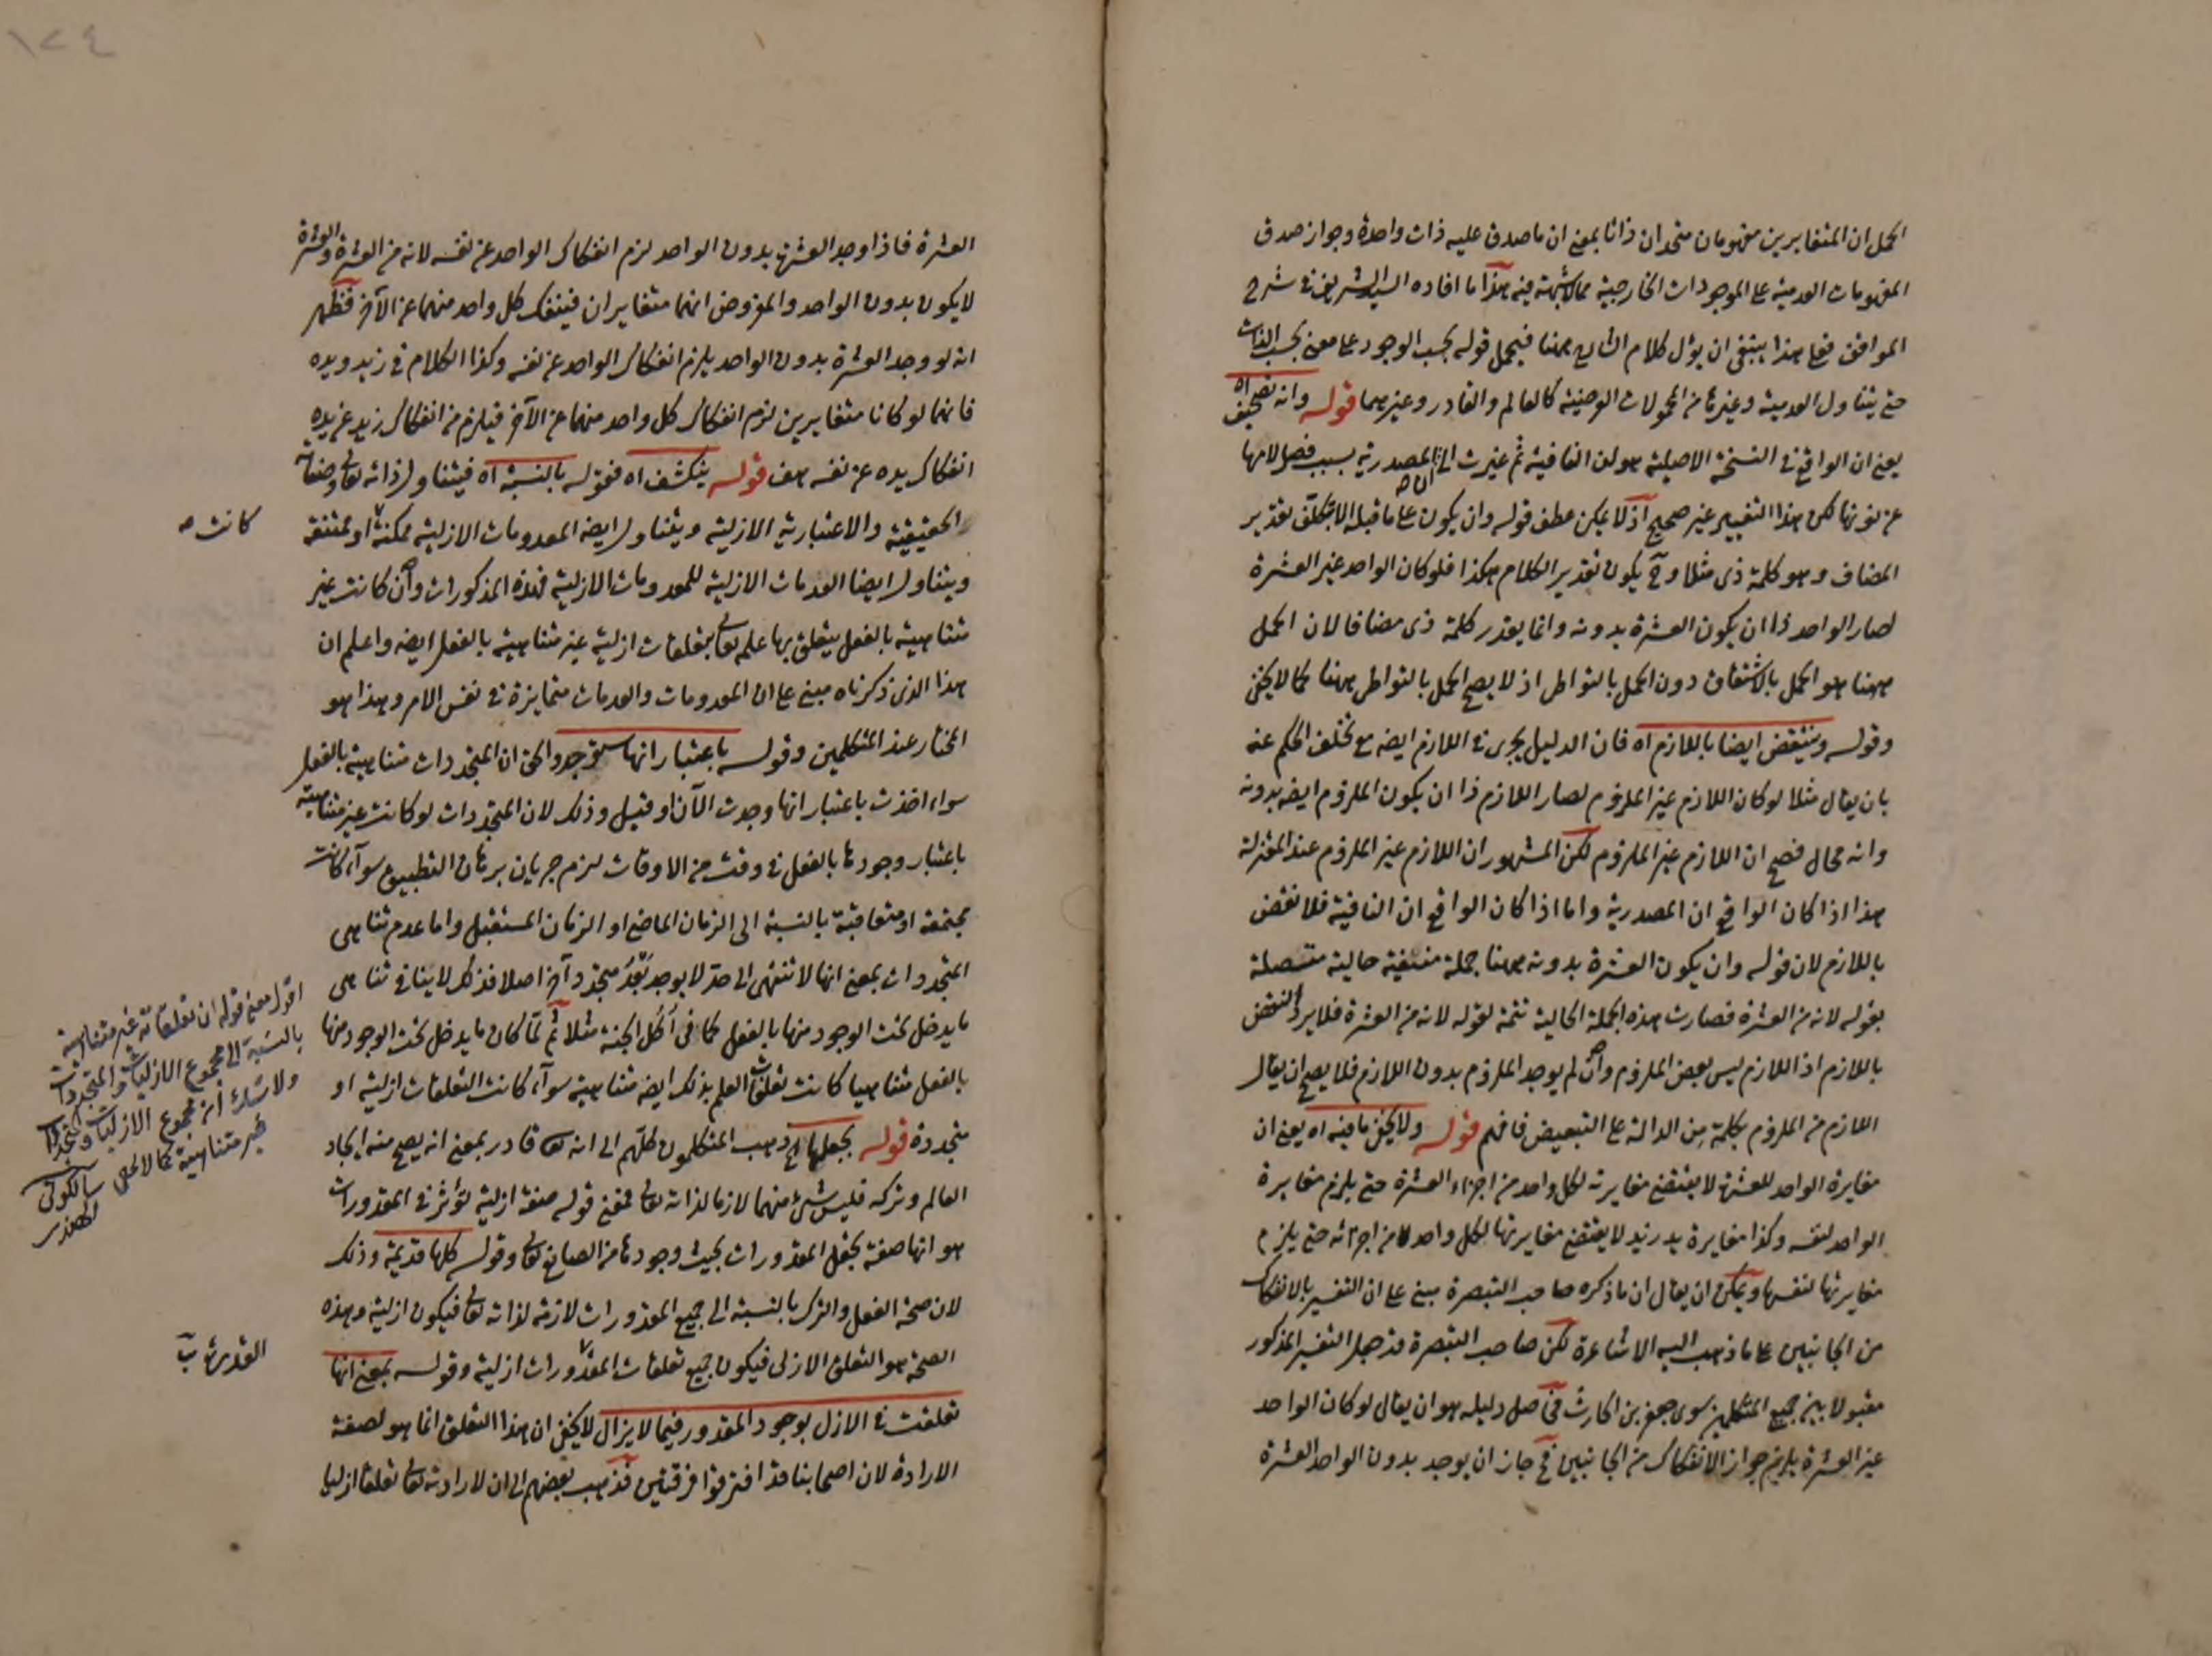 الحمل ان المتغايرين مفهومان متحدان ذاتا بمعنى ان ماصدق عليه ذات واحدة وجواز صدق
المفهومات العدمية على الموجودات الخارجية مما لاشبهة فيه هذا ما افاده السيد الشريف في شرح
المواقف فعلى هذا ينبغى ان يؤل كلام الشارح ههنا فيحمل قوله بحسب الوجود على معنى بحسب الذات
حتى يتناول العدمية وغيرها من المحمولات الوصفية كالعالم والقادر وغيرهما قوله وانه تصحيف اه
يعنى ان الواقع فى النسخة الاصلية هو لن النافية ثم غيرت الى ان المصدرية بسبب فصل لامها
عن نونها لكن هذا التغيير غير صحيح اذ لا يمكن عطف قوله وان يكون على ما قبله الا بتكلف تقدير
المضاف وهو كلمة ذى مثلا وح يكون تقدير الكلام هكذا فلو كان الواحد غير العشرة
لصار الواحد ذا ان يكون العشرة بدونه وانما يقدر كلمة ذى مضافا لان الحمل
ههنا هو الحمل بالاشتقاق دون الحمل بالتواطى اذ لا يصح الحمل بالتواطى ههنا كما لا يخفى
وقوله وينتقض ايضا باللازم اه فان الدليل يجرى فى اللازم ايضه مع تخلف الحكم عنه
بان يقال مثلا لو كان اللازم غير الملزوم لصار اللازم ذا ان يكون الملزوم ايضه بدونه
وانه محال فصح ان اللازم غير الملزوم لكن المشهور ان اللازم غير الملزوم عند المعتزلة
هذا اذا كان الواقع ان المصدرية واما اذا كان الواقع ان النافية فلا نقض
باللازم لان قوله وان يكون العشرة بدونه ههنا جملة منفية حالية متصلة
بقوله لانه من العشرة فصارت هذه الجملة الحالية تتمة لقوله لانه من العشرة فلا يرد النقض
باللازم اذ اللازم ليس بعض الملزوم وان لم يوجد الملزوم بدون اللازم فلا يصح ان يقال
اللازم من الملزوم بكلمة من الدالة على التبعيض فافهم قوله ولا يخفى ما فيه اه يعنى ان
مغايرة الواحد للعشرة لا يقتضى مغايرته لكل واحد من اجزاء العشرة حتى يلزم مغايرة
الواحد لنفسه وكذا مغايرة يد زيد لا يقتضى مغايرتها لكل واحد من اجزائه حتى يلزم
مغايرتها لنفسها ويمكن ان يقال ان ما ذكره صاحب التبصرة مبنى على ان التفسير بالانفكاك
من الجانبين على ما ذهب اليه الاشاعرة لكن صاحب التبصرة قد جعل التفسير المذكور
مقبولا بين جميع المتكلمين سوى جعفر بن الحارث فح اصل دليله هو ان يقال لو كان الواحد
غير العشرة يلزم جواز الانفكاك من الجانبين فح جاز ان يوجد بدون الواحد العشرة
العشرة فاذا وجد العشرة بدون الواحد لزم انفكاك الواحد عن نفسه لانه من العشرة والعشرة
لا يكون بدون الواحد والمفروض انهما متغايران فينفك كل واحد منهما عن الآخر فظهر
انه لو وجد العشرة بدون الواحد يلزم انفكاك الواحد عن نفسه وكذا الكلام فى زيد ويده
فانهما لو كانا متغايرين لزم انفكاك كل واحد منهما عن الآخر فيلزم من انفكاك زيد عن يده
انفكاك يده عن نفسه هف قوله ينكشف اه فقوله بالنسبة اه فيتناول ذاته تعالى وصفاته
الحقيقية والاعتبارية الازلية ويتناول ايضه المعدومات الازلية ممكنة او ممتنعة
كانت صه
ويتناول ايضا العدمات الازلية للمعدومات الازلية فهذه المذكورات وان كانت غير
متناهية بالفعل يتعلق بها علمه تعالى بتعلقات ازلية غير متناهية بالفعل ايضه واعلم ان
هذا الذى ذكرناه مبنى على ان المعدومات والعدمات متمايزة فى نفس الامر وهذا هو
المختار عند المتكلمين وقوله باعتبار انها ستوجد والحق ان المتجددات متناهية بالفعل
سواء اخذت باعتبار انها وجدت الآن او قبل وذلك لان المتجددات لو كانت غير متناهية
باعتبار وجودها بالفعل فى وقت من الاوقات لزم جريان برهان التطبيق سوآء كانت
مجتمعة او متعاقبة بالنسبة الى الزمان الماضى او الزمان المستقبل واما عدم تناهى
المتجددات بمعنى انها لا تنتهى الى حد لا يوجد بعد متجدد آخر اصلا فذلك لا ينافى تناهى
ما يدخل تحت الوجود منها بالفعل كما فى اكل الجنة مثلا ثم لما كان ما يدخل تحت الوجود منها
بالفعل متناهيا كانت تعلقات العلم بذلك ايضه متناهية سوآء كانت التعلقات ازلية او
متجددة قوله بجعلها اح ذهب المتكلمون كلهم الى انه تعالى قادر بمعنى انه يصح منه ايجاد
العالم وتركه فليس شئ منهما لازما لذاته تعالى فمعنى قوله صفة ازلية تؤثر فى المقدورات
هو انها صفة تجعل المقدورات بحيث وجودها من الصانع تعالى وقوله كلها قديمة وذلك
لان صحة الفعل والترك بالنسبة الى جميع المقدورات لازمة لذاته تعالى فيكون ازلية وهذه
الصحة هو التعلق الازلى فيكون جميع تعلقات المقدورات ازلية وقوله بمعنى انها
تعلقت فى الازل بوجود المقدور فيما لا يزال لا يخفى ان هذا التعلق انما هو لصفة
الارادة لان اصحابنا قد افترقوا فرقتين فذهب بعضهم الى ان لارادته تعالى تعلقا ازليا
اقول معنى قوله ان تعلقاته غير متناهية
بالنسبة الى مجموع الازليات والمتجددات
ولا شك ان مجموع الازليات والمتجددات
غير متناهية كما لا يخفى سيالكوتى
١٢٤